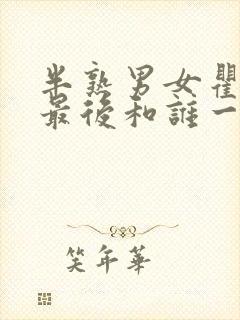 半熟男女瞿
最後和誰一
笑年華